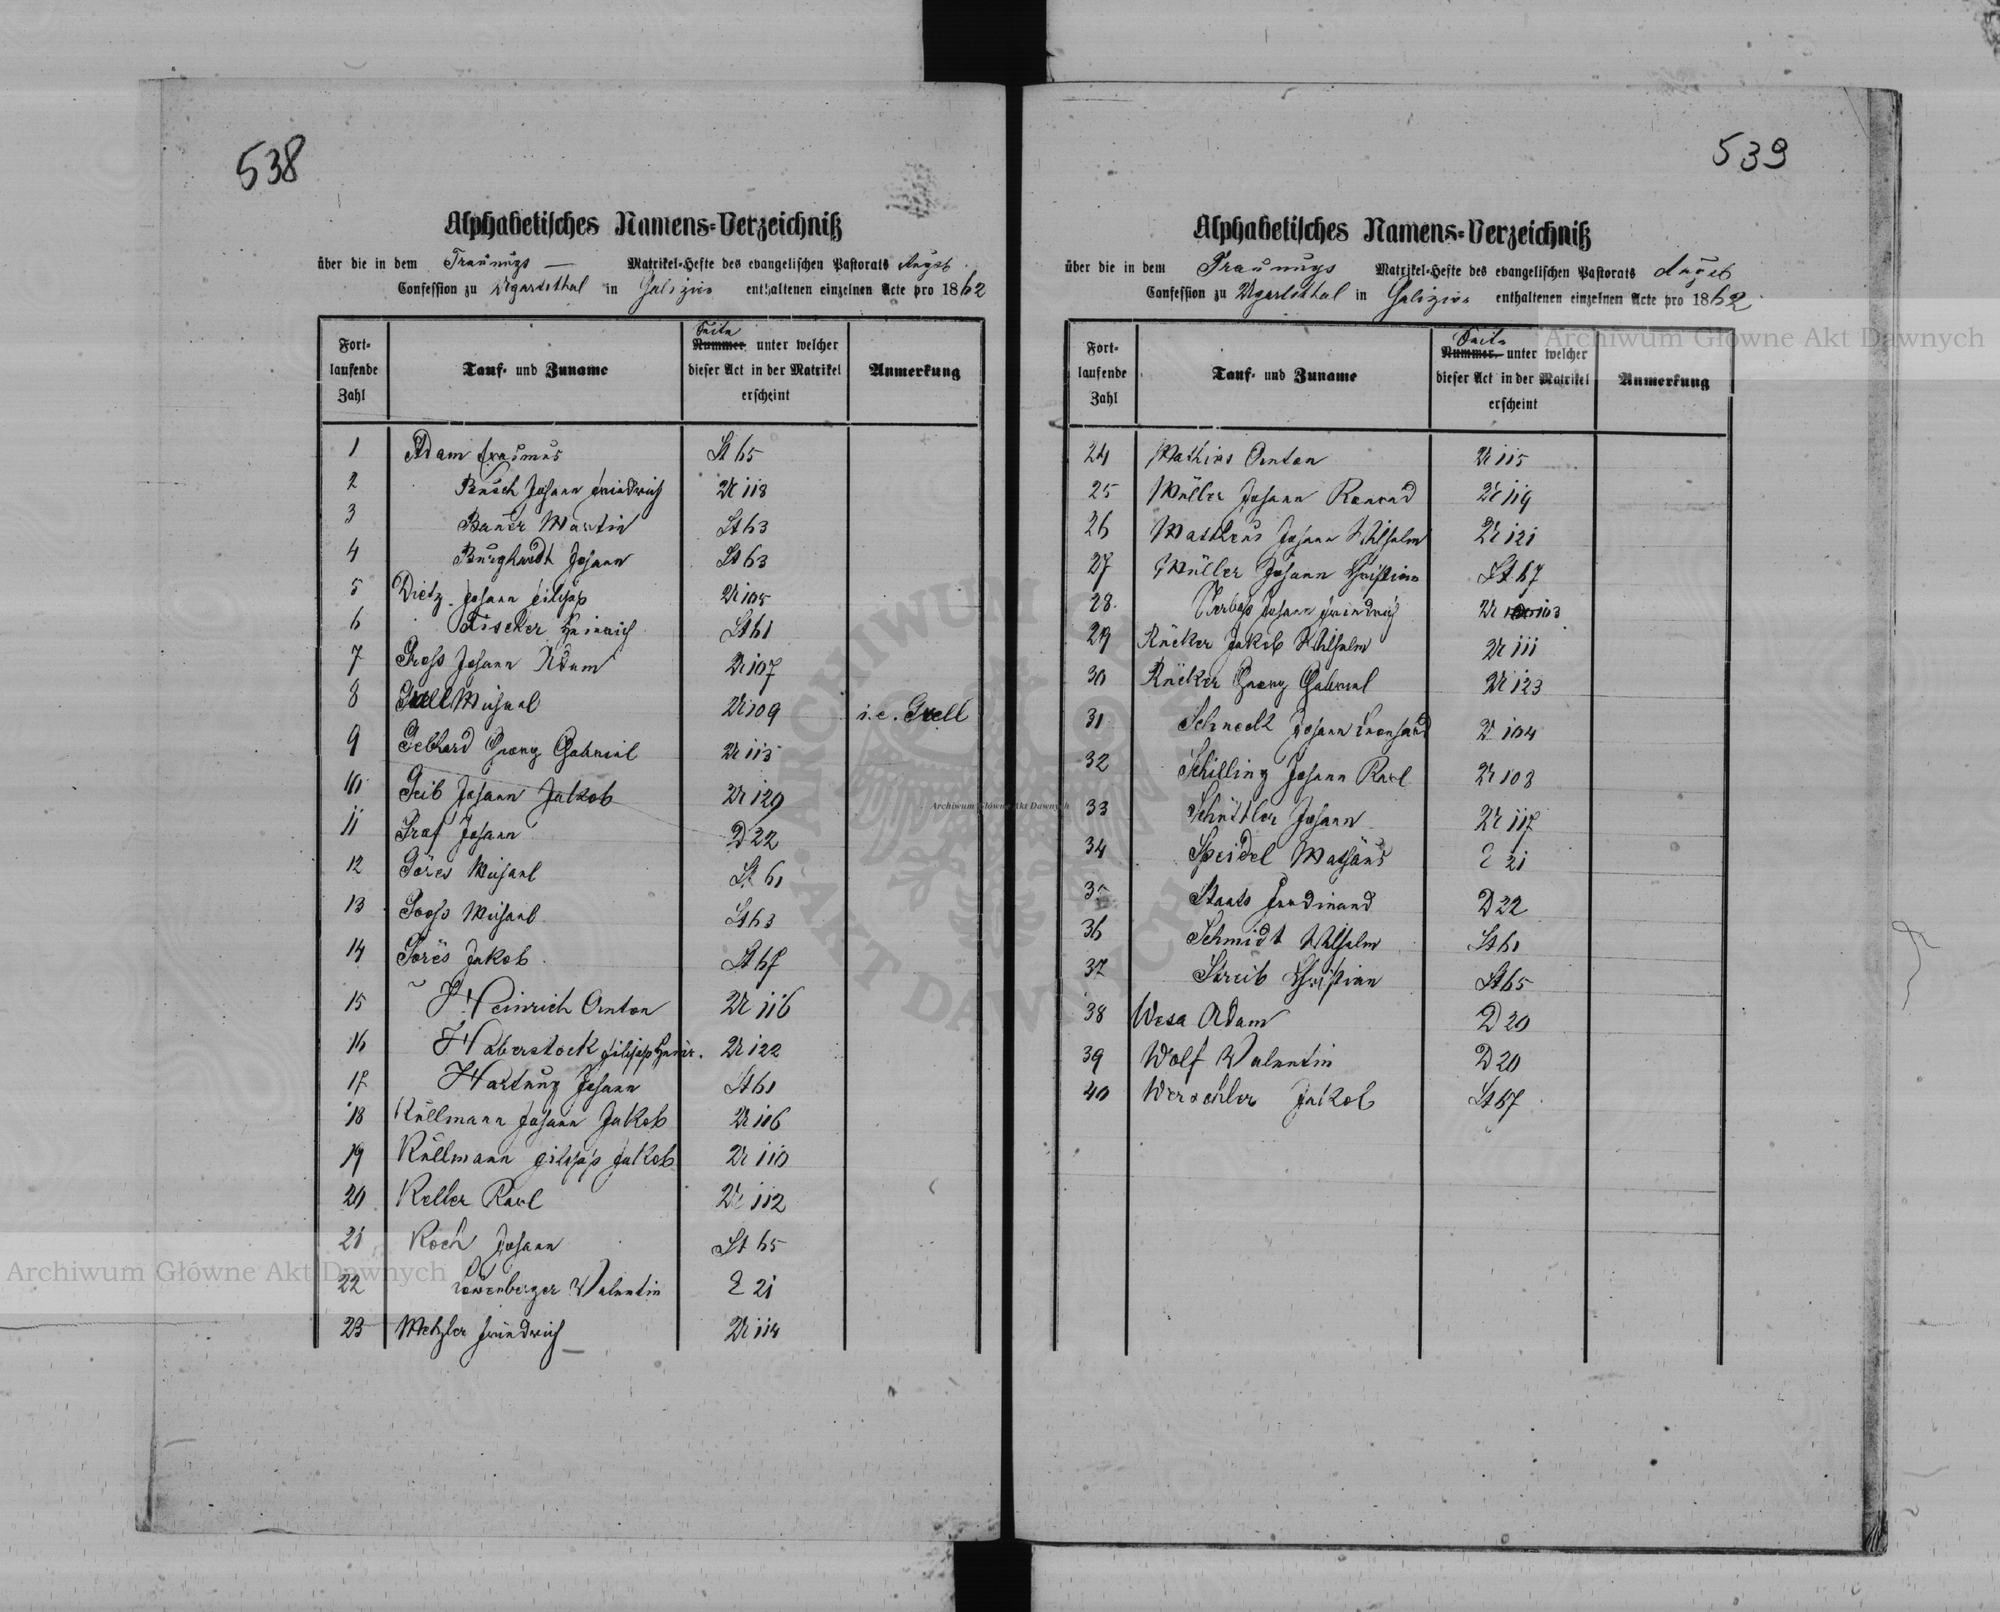 538
Alphabetisches Namens-Verzeichniß
über die in dem Trauungs — Matrikel-Hefte des evangelischen Pastorats Augsb.
Confession zu Ugartsthal in Galizien enthaltenen einzelnen Acte pro 1862
Fort-laufende Zahl
Tauf- und Zuname
Seite Nummer unter welcher dieser Act in der Matrikel erscheint
Anmerkung
1 Adam Erasmus St 65
2 Busch Johann Friedrich U 118
3 Bauer Martin St 63
4 Burghardt Johann St 63
5 Dietz Johann Filipp U 105
6 Fischer Heinrich St 61
7 Gross Johann Adam U 107
8 Michael U 109 i.e. Grell
9 Gebhard Georg Gabriel U 113
10 Geib Johann Jakob U 120
11 Graf Johann D 22
12 Göres Michael St 61
13 Goos Michael St 63
14 Göres Jakob St 67
15 Heinrich Anton U 116
16 Haberstock Filipp Heinr. U 122
17 Hartung Johann St 61
18 Kullmann Johann Jakob U 106
19 Kullmann Filipp Jakob U 110
20 Keller Karl U 112
21 Koch Johann St 65
22 Löwenberger Valentin E 21
23 Metzler Friedrich U 114
539
Alphabetisches Namens-Verzeichniß
über die in dem Trauungs Matrikel-Hefte des evangelischen Pastorats Augsb
Confession zu Ugartsthal in Galizien enthaltenen einzelnen Acte pro 1862
Fort-laufende Zahl
Tauf- und Zuname
Seite Nummer unter welcher dieser Act in der Matrikel erscheint
Anmerkung
24 Mathias Anton U 115
25 Müller Johann Konrad U 119
26 Matheus Johann Wilhelm U 121
27 Müller Johann Christian St 67
28. Johann Friedrich U 103
29 Rücker Jakob Wilhelm U 111
30 Rücker Georg Gabriel U 123
31 Schneck Johann Leonhard U 104
32 Schilling Johann Karl U 108
33 Schüttler Johann U 117
34 Speidel Mathäus E 21
35 Staats Ferdinand D 22
36 Schmidt Wilhelm St 61
37 Streib Christian St 65
38 Wesa Adam D 20
39 Wolf Valentin D 20
40 Jakob St 67
Archiwum Główne Akt Dawnych
Archiwum Główne Akt Dawnych
Archiwum Główne Akt Dawnych
ARCHIWUM
AKT DAWNYCH